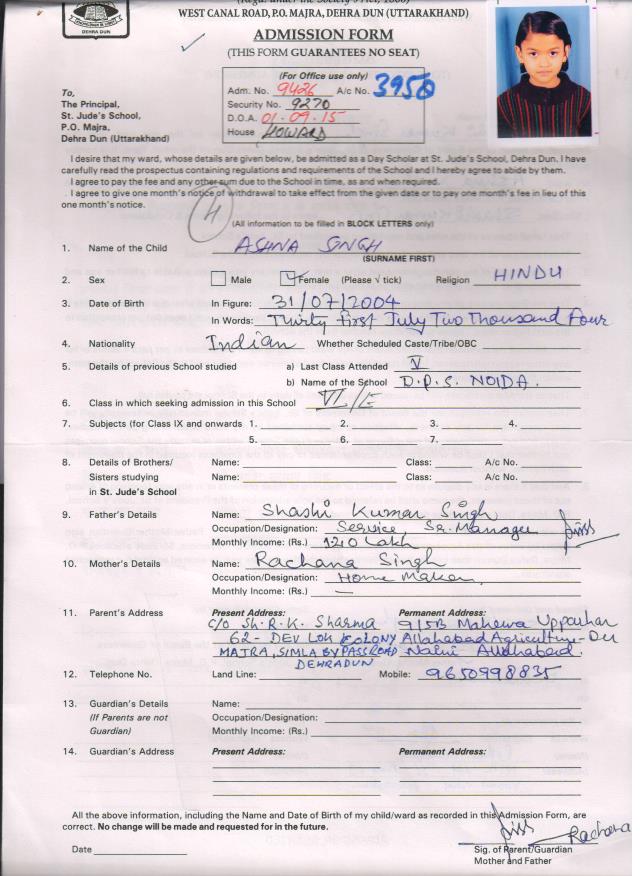 WEST CANAL ROAD, P.O. MAJRA, DEHRA DUN (UTTARAKHAND)
DEHRA DUN
ADMISSION FORM
(THIS FORM GUARANTEES NO SEAT)
(For Office use only)
Adm. No. 9426 A/c No. 3950
Security No. 9270
D.O.A. 01.09.15
House HOWARD
To,
The Principal,
St. Jude's School,
P.O. Majra,
Dehra Dun (Uttarakhand)
I desire that my ward, whose details are given below, be admitted as a Day Scholar at St. Jude's School, Dehra Dun. I have
carefully read the prospectus containing regulations and requirements of the School and I hereby agree to abide by them.
I agree to pay the fee and any other sum due to the School in time, as and when required.
I agree to give one month's notice of withdrawal to take effect from the given date or to pay one month's fee in lieu of this
one month's notice.
4
(All information to be filled in BLOCK LETTERS only)
1. Name of the Child ASHNA SINGH
(SURNAME FIRST)
2. Sex Male Female (Please √ tick) Religion HINDU
3. Date of Birth In Figure: 31/07/2004
In Words: Thirty first July Two Thousand Four
4. Nationality Indian Whether Scheduled Caste/Tribe/OBC
5. Details of previous School studied a) Last Class Attended V
b) Name of the School D.P.S. NOIDA.
6. Class in which seeking admission in this School VI/E
7. Subjects (for Class IX and onwards 1. 2. 3. 4.
5. 6. 7.
8. Details of Brothers/ Name: Class: A/c No.
Sisters studying Name: Class: A/c No.
in St. Jude's School
9. Father's Details Name: Shashi Kumar Singh
Occupation/Designation: Service Sr. Manager
Monthly Income: (Rs.) Lakh
10. Mother's Details Name: Rachana Singh
Occupation/Designation: Home Maker
Monthly Income: (Rs.) —
11. Parent's Address Present Address: Permanent Address:
C/O Sh. R.K. Sharma 915B Mahewa
62- DEV LOK COLONY Allahabad Agriculture-
MAJRA, SIMLA BY PASS ROAD Naini Allahabad.
DEHRADUN
12. Telephone No. Land Line: Mobile: 9650998835
13. Guardian's Details Name:
(If Parents are not Occupation/Designation:
Guardian) Monthly Income: (Rs.)
14. Guardian's Address Present Address: Permanent Address:
All the above information, including the Name and Date of Birth of my child/ward as recorded in this Admission Form, are
correct. No change will be made and requested for in the future.
Rachana
Date Sig. of Parent/Guardian
Mother and Father